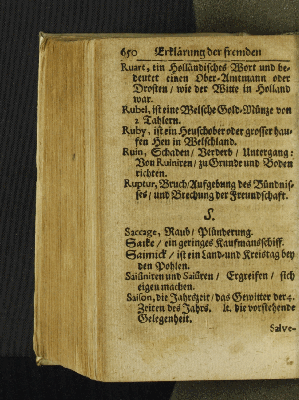 650 Erklärung der fremden
Ruart, ein Holländisches Wort und be-
deutet einen Ober-Amtmann oder
Drosten / wie der Witte in Holland
war.
Rubel, ist eine Welsche Gold-Müntze von
2 Thalern.
Ruby, ist ein Heuschober oder grosser hau-
fen Heu in Welschland.
Ruin, Schaden / Verderb / Untergang:
Von Ruiniren / zu Grunde und Boden
richten.
Ruptur, Bruch / Aufgebung des Bündnis-
ses / und Brechung der Freundschaft.
S.
Saccage, Raub / Plünderung.
Saike / ein geringes Kaufmansschiff.
Saimick / ist ein Land-und Kreistag bey
den Pohlen.
Saisiniren und Saisiren / Ergreifen / sich
eigen machen.
Saison, die Jahrszeit / das Gewitter der 4.
Zeiten des Jahrs. It. die vorstehende
Gelegenheit.
Salve-